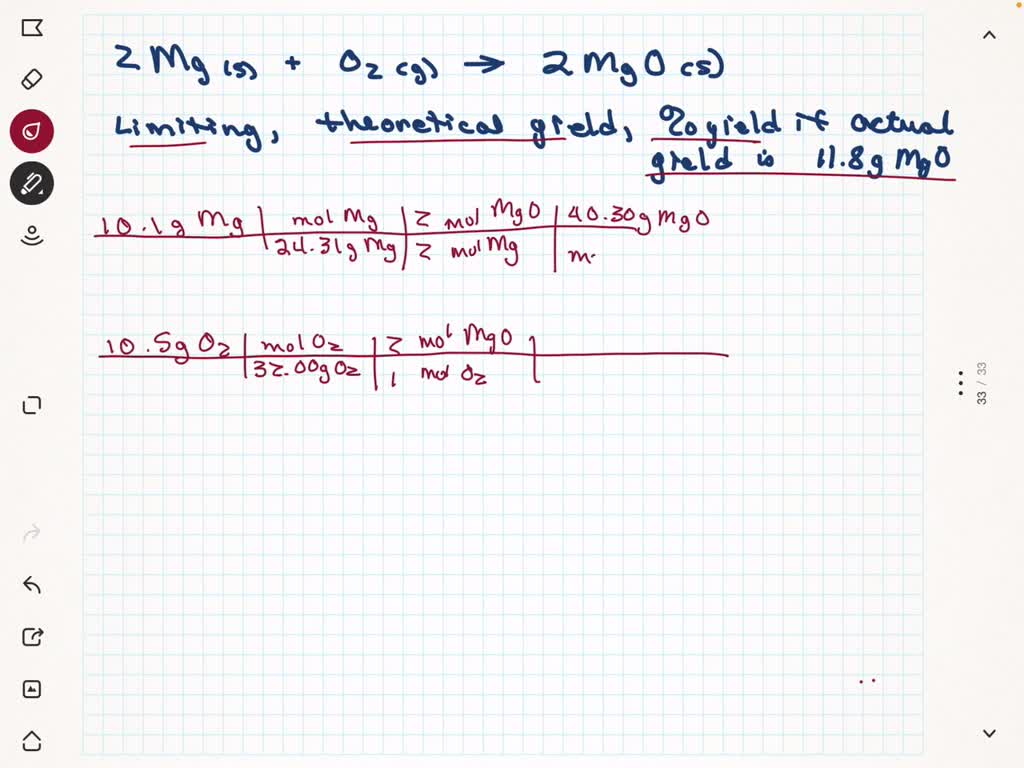 2 Mg (s) + O2 (g) → 2 MgO (s)
Limiting, theoretical yield, % yield if actual
yield is 11.8g MgO
10.1g Mg | mol Mg | 2 mol MgO | 40.30g MgO
24.31g Mg | 2 mol Mg | m
10.5g O2 | mol O2 | 2 mol MgO |
32.00g O2 | 1 mol O2
33 / 33